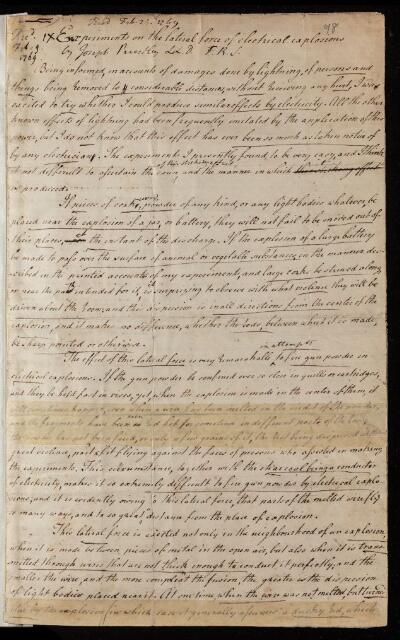 Read Feb. 23. 1769.
98
Rec.d IX Experiments on the lateral force of electrical explosions
Feb. 9 by Joseph Priestley L.L.D F. R. S.
1769.
Being informed, in accounts of damages done by lightning, of persons and
things being removed to considerable distances, without receiving any hurt, I was
excited to try whether I could produce similar effects by electricity. All the other
known effects of lightning had been frequently imitated by the application of this
power, but I do not know that this effect has ever been so much as taken notice of
by any electrician. The experiments I presently found to be very easy, and I think
it not difficult to ascertain the cause, and the manner in which
is produced.
If pieces of cork, powder of any kind, or any light bodies whatever be
placed near the explosion of a jar, or battery, they will not fail to be moved out of
their places, the instant of the discharge. If the explosion of a large battery
be made to pass over the surface of animal or vegetable substances, in the manner des-
cribed in the printed accounts of my experiments, and large corks be strewed along
or near the path intended for it, it is surprizing to observe with what violence they will be
driven about the room; and this dispersion is in all directions from the center of the
explosion, and it makes no difference, whether the rods, between which it is made,
be sharp pointed or otherwise.
The effect of this lateral force is very remarkable in attempts to fire gun powder in
electrical explosions. If the gun powder be confined ever so close in quills or cartridges,
and they be held fast in vices, yet, when the explosion is made in the center of them, it
will sometimes happen, even when a wire has been melted in the midst of the powder,
and the fragments have been seen red hot for some time in different parts of the room,
the powder not fired, or only a few grains of it, the rest being dispersed with
great violence, part of it flying against the faces of persons who assisted in making
the experiments. This circumstance, together with the charcoal being a conductor
of electricity, makes it so extremely difficult to fire gun powder by electrical explo-
sions; and it is evidently owing to this lateral force, that parts of the melted wire fly
so many ways, and to so great distance from the place of explosion.
This lateral force is exerted not only in the neighbourhood of an explosion,
when it is made between pieces of metal in the open air, but also when it is trans-
mitted through wires that are not thick enough to conduct it perfectly; and the
smaller the wire, and the more compleat the fusion, the greater is the dispersion
of light bodies placed near it. At one time when the wire was not melted, but turned
blue by the explosion (in which case it generally assumes a dusky red, which